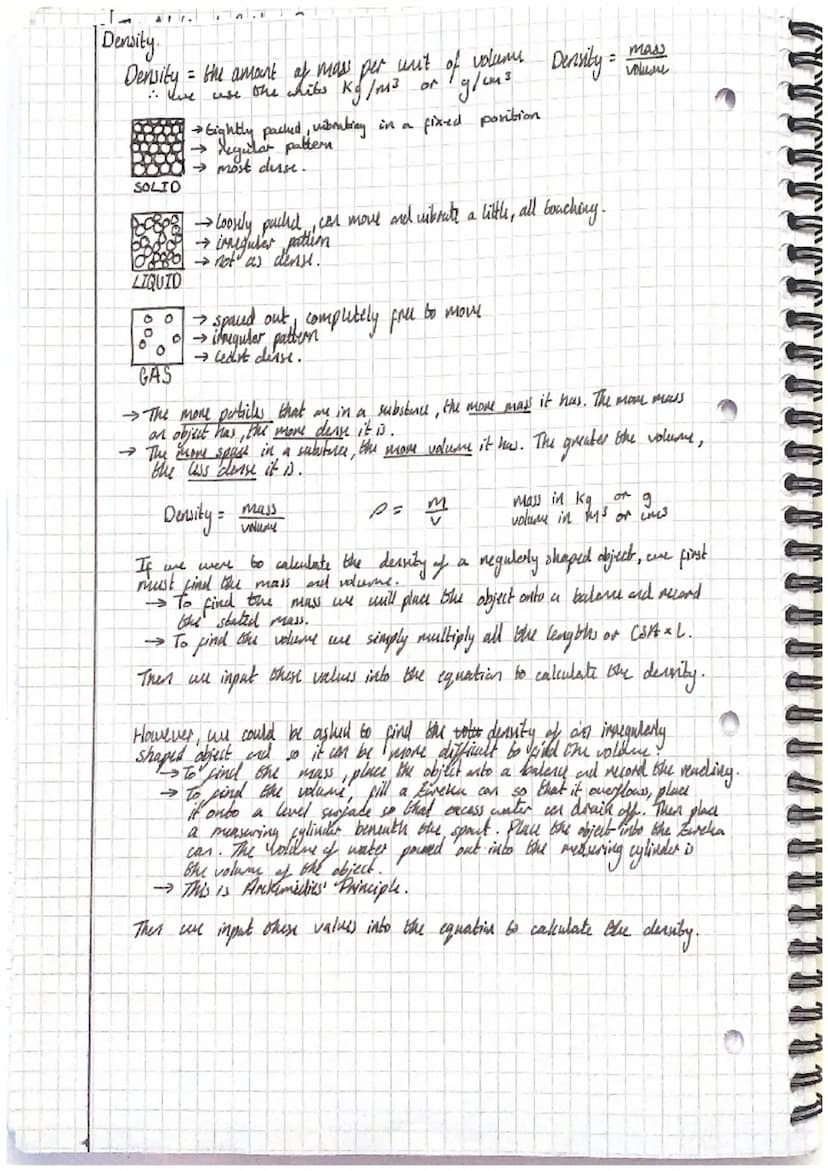 Density.
Density = the amount of mass per unit of volume
Density = mass / volume
∴ we use the units Kg/m³ or g/cm³
→ tightly packed, vibrating in a fixed position
→ regular pattern
→ most dense.
SOLID
→ loosely packed, can move and vibrate a little, all touching.
→ irregular pattern
→ not as dense.
LIQUID
→ spaced out, completely free to move
→ irregular pattern
→ least dense.
GAS
→ The more particles that are in a substance, the more mass it has. The more mass
an object has, the more dense it is.
→ The more space in a substance, the more volume it has. The greater the volume,
the less dense it is.
Density = mass / volume
ρ = m / v
mass in kg or g
volume in m³ or cm³
If we were to calculate the density of a regularly shaped object, we first
must find the mass and volume.
→ To find the mass we will place the object onto a balance and record
the stated mass.
→ To find the volume we simply multiply all the lengths or CSA × L.
Then we input these values into the equation to calculate the density.
However, we could be asked to find the density of an irregularly
shaped object and so it can be more difficult to find the volume.
→ To find the mass, place the object onto a balance and record the reading.
→ To find the volume, fill a Eureka can so that it overflows, place
it onto a level surface so that excess water can drain off. Then place
a measuring cylinder beneath the spout. Place the object into the Eureka
can. The volume of water poured out into the measuring cylinder is
the volume of the object.
→ This is Archimedies' Principle.
Then we input these values into the equation to calculate the density.